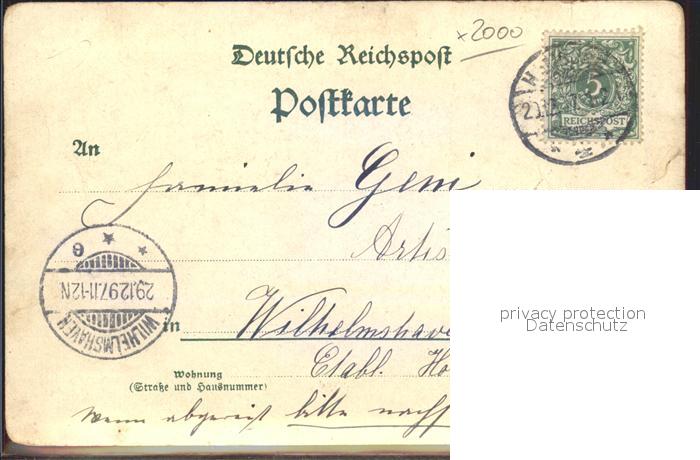 x2000
Deutsche Reichspost
Postkarte
5
REICHSPOST
An
Familie
Artis
29.12.97.11-12N
WILHELMSHAVEN
in Wilhelmshave
Etabl. Ho
Wohnung
(Straße und Hausnummer)
Wenn abgereist bitte nach
privacy protection
Datenschutz